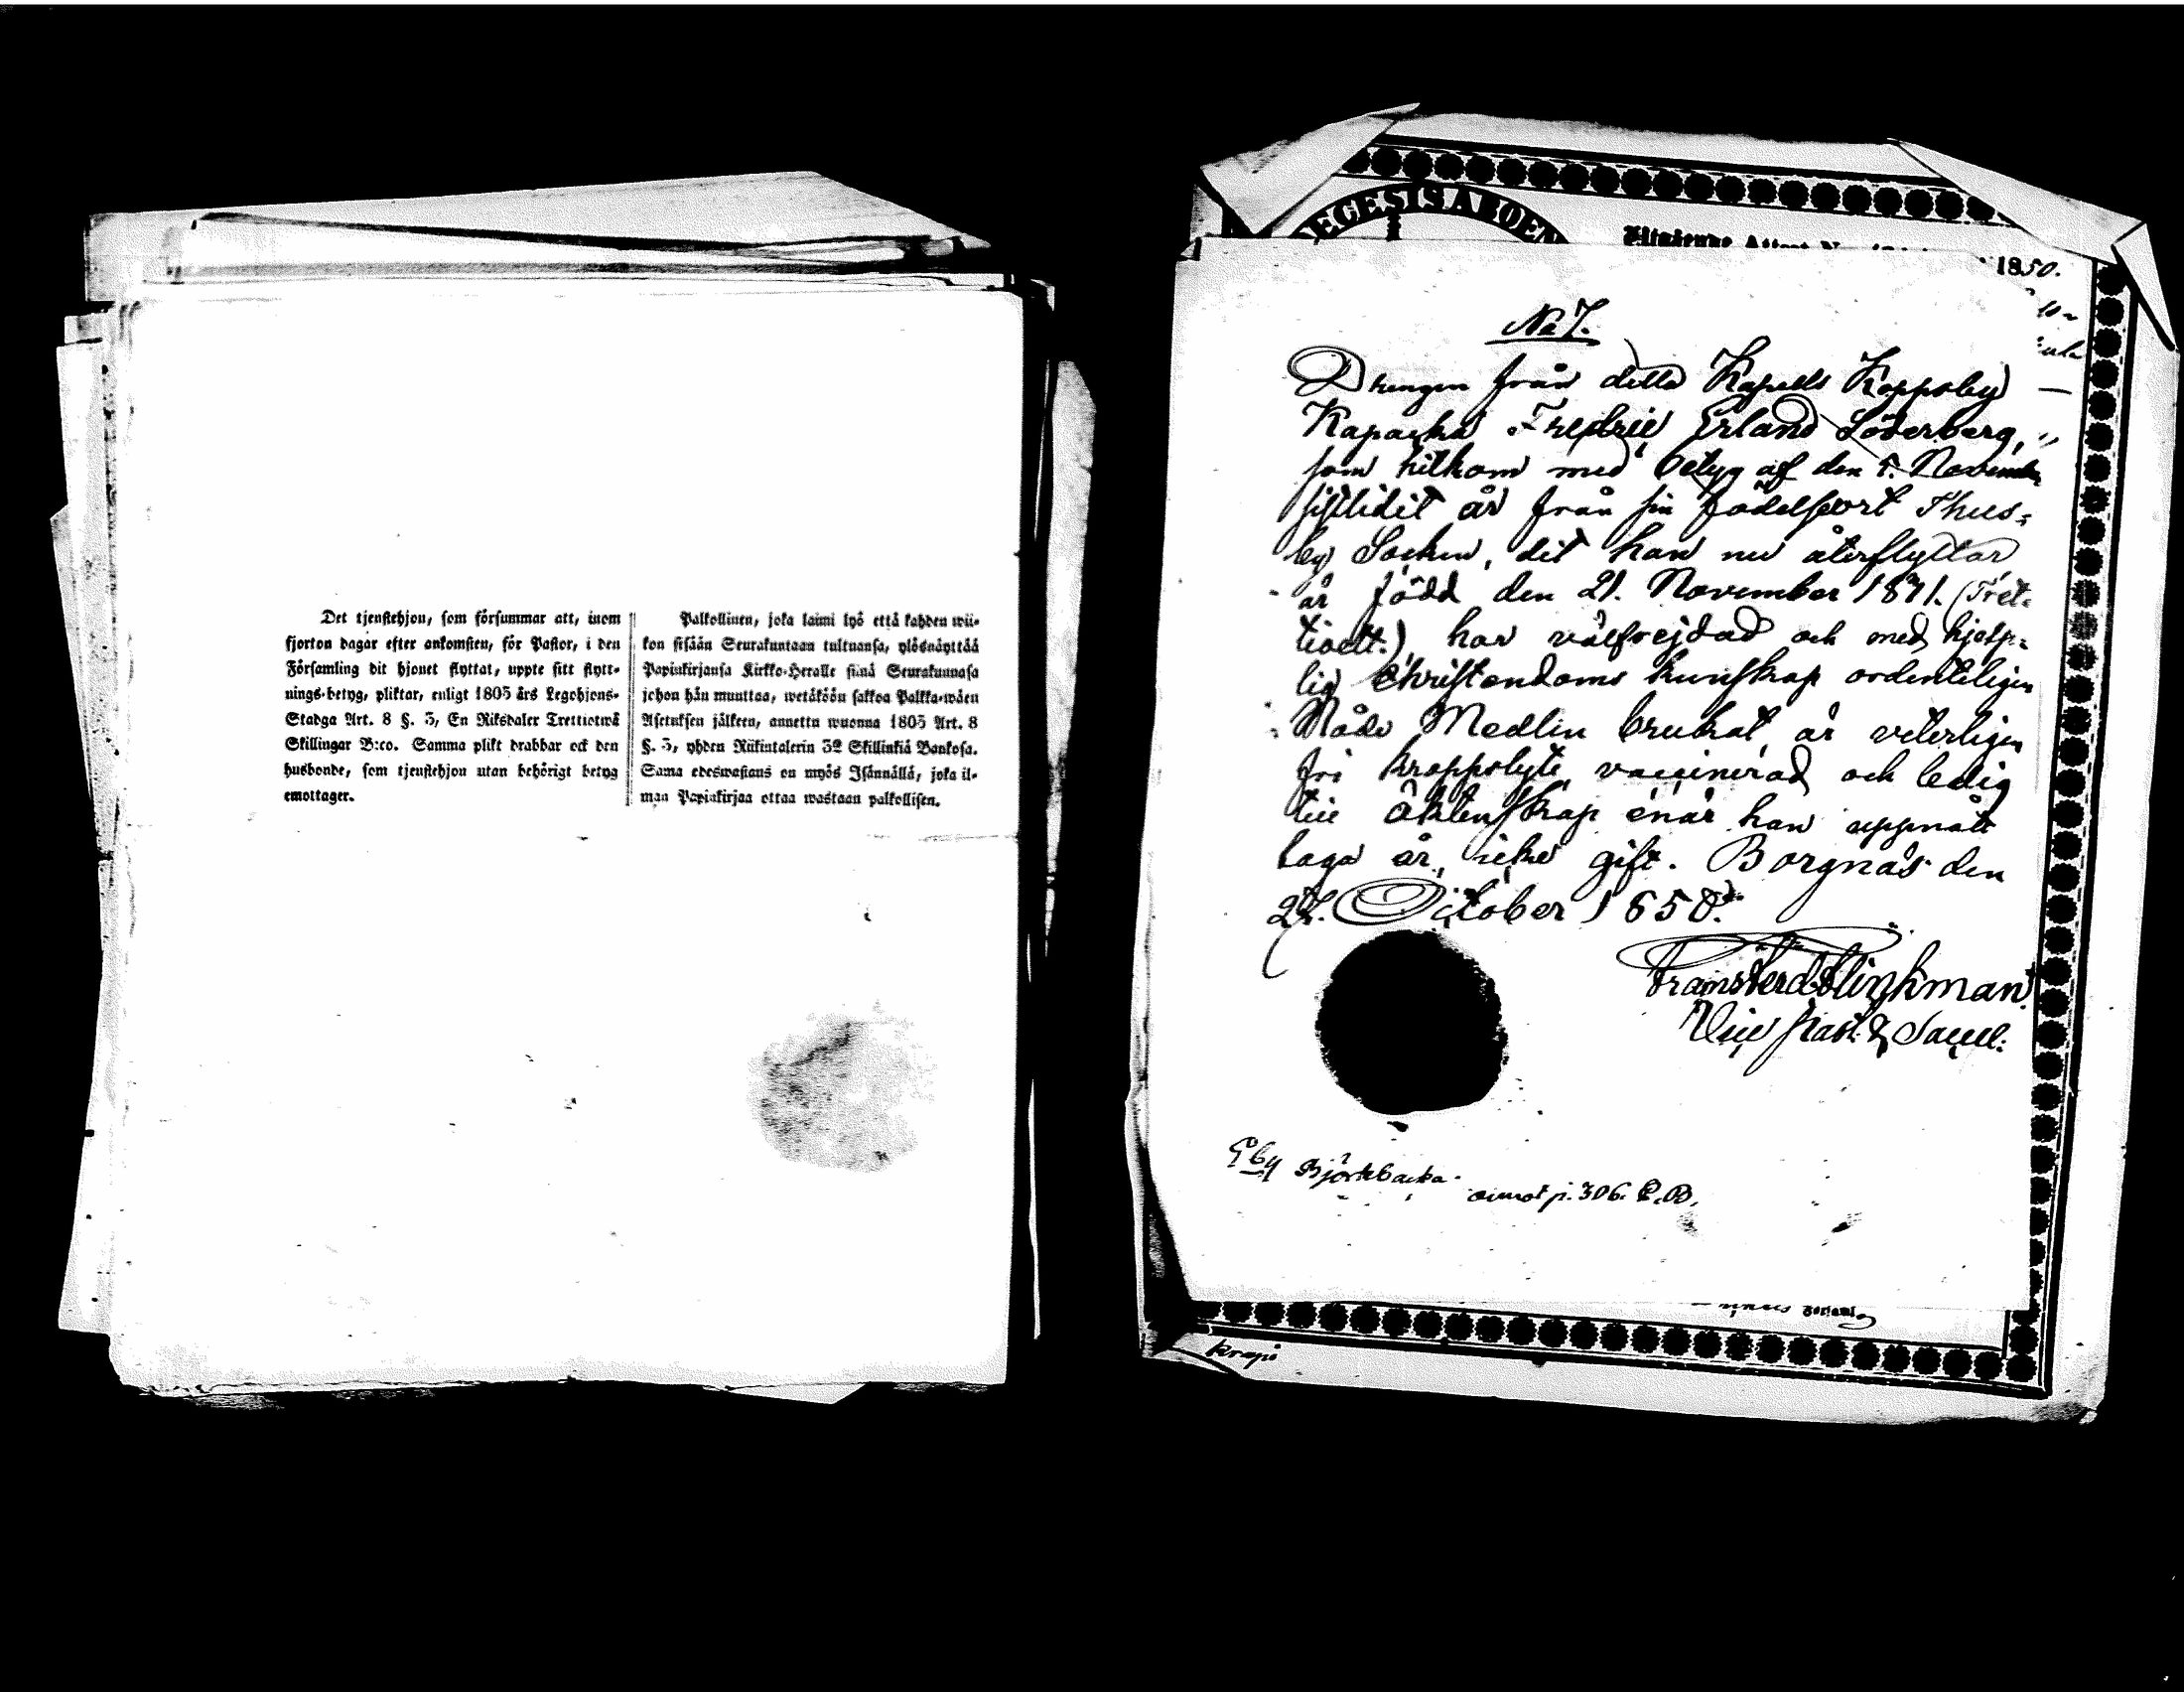 Det tjenstehjon, som försummar att, inom
fjorton dagar efter ankomsten, för Pastor, i den
Församling dit hjonet flyttat, uppte sitt flytt-
nings-betyg, pliktar, enligt 1805 års Legohjons-
Stadga Art. 8 §. 3, En Riksdaler Trettiotwå
Skillingar B:co. Samma plikt drabbar ock den
husbonde, som tjenstehjon utan behörigt betyg
emottager.
Palkollinen, joka laimi lyö että kahden wii-
kon sisään Seurakuntaan tultuansa, ylösnäyttää
Papinkirjansa Kirkko-Heralle siinä Seurakunnasa
johon hän muuttaa, wetäköön sakkoa Palkka-wäen
Asetuksen jälkeen, annettu wuonna 1805 Art. 8
§. 3, yhden Riikintalerin 32 Skillinkiä Bankosa.
Sama edeswastaus on myös Isännällä, joka il-
man Papinkirjaa ottaa wastaan palkollisen.
EGESISABOEN
1850.
No 7.
Drengen från detta Kapells Koppsby
Kapacka Fredric Erland Söderberg,
som hitkom med betyg af den 5. Novemb
sistledit år från sin födelseort Thus-
by Socken, dit han nu återflyttar
är född den 21. November 1831. (Tret-
tioett.) har välfrejdad och med hjelp-
lig Christendoms kunskap ordenteligen
Nåde Medlen brukat, är veterligen
fri kroppslyte, vaccinerad och ledig
till Äktenskap enär han uppnått
laga år, icke gift. Borgnäs den
27. October 1850.
Frans Ferd. Flinkman
Vice Past. & Sacell.
Åby Björkbacka.
annot p. 306. C. B.
Församl
Krapi